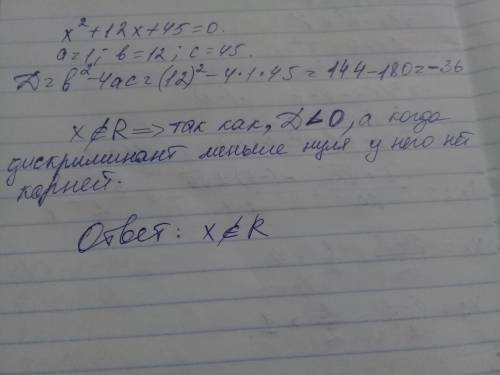 x²+12x+45=0.
a=1; b=12; c=45.
D=b²-4ac=(12)²-4·1·45=144-180=-36
x∉R=>так как, D<0, а когда
дискриминант меньше нуля у него нет
корней.
Ответ: x∉R